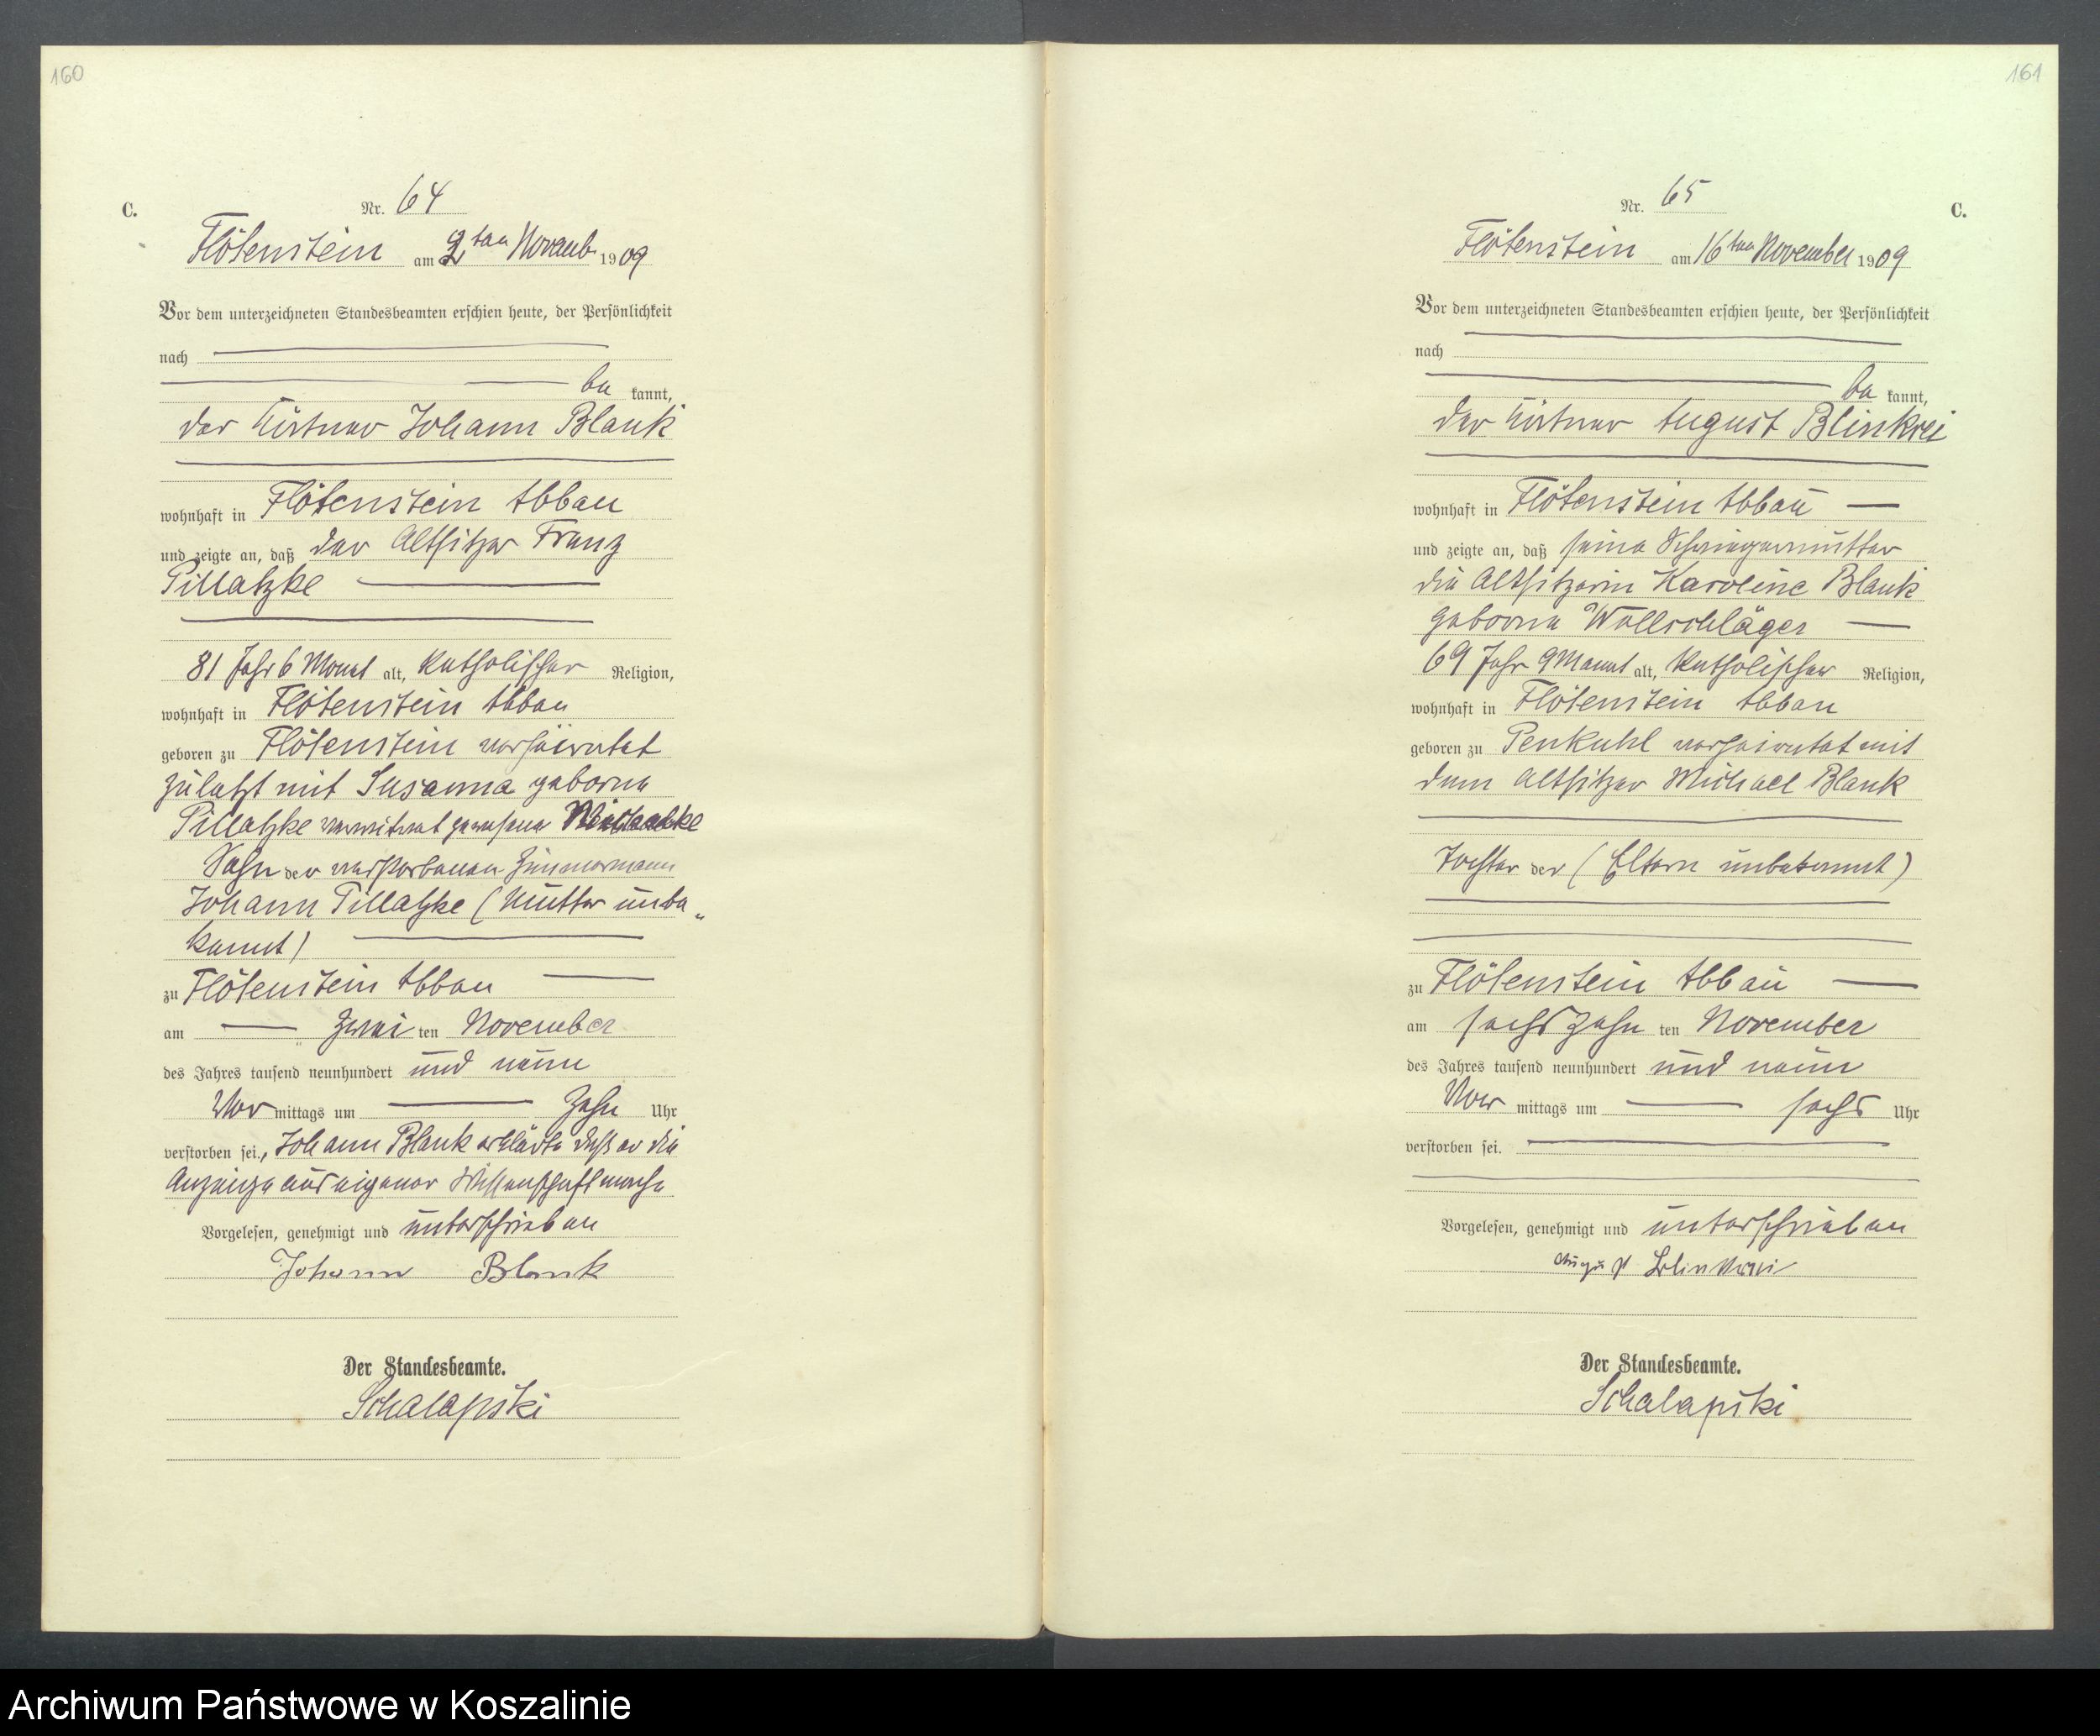 160
C.
Nr. 64
Flötenstein am 2ten Novemb. 1909
Vor dem unterzeichneten Standesbeamten erschien heute, der Persönlichkeit
nach
be kannt,
der Kätner Johann Blank
wohnhaft in Flötenstein Abbau
und zeigte an, daß der Altsitzer Franz
Pillatzke
81 Jahr 6 Monat alt, katholischer Religion,
wohnhaft in Flötenstein Abbau
geboren zu Flötenstein verheiratet
zuletzt mit Susanna geborne
Pillatzke verwitwet gewesene
Sohn der verstorbenen Zimmermann
Johann Pillatzke (Mutter unbe„
kannt)
zu Flötenstein Abbau
am zwei ten November
des Jahres tausend neunhundert und neun
Vor mittags um zehn Uhr
verstorben sei., Johann Blank erklärte daß er die
Anzeige aus eigener Wissenschaft mache
Vorgelesen, genehmigt und unterschrieben
Johann Blank
Der Standesbeamte.
Schalapski
161
Nr. 65
C.
Flötenstein am 16ten November 1909
Vor dem unterzeichneten Standesbeamten erschien heute, der Persönlichkeit
nach
be kannt,
der Kätner August Blinkrei
wohnhaft in Flötenstein Abbau
und zeigte an, daß seine Schwiegermutter
die Altsitzerin Karoline Blank
geborne Wollschläger
69 Jahr 9 Monat alt, katholischer Religion,
wohnhaft in Flötenstein Abbau
geboren zu Penkuhl verheiratet mit
dem Altsitzer Michael Blank
Tochter der (Eltern unbekannt)
zu Flötenstein Abbau
am sechszehn ten November
des Jahres tausend neunhundert und neun
Vor mittags um sechs Uhr
verstorben sei.
Vorgelesen, genehmigt und unterschrieben
August Blinkrei
Der Standesbeamte.
Schalapski
Archiwum Państwowe w Koszalinie